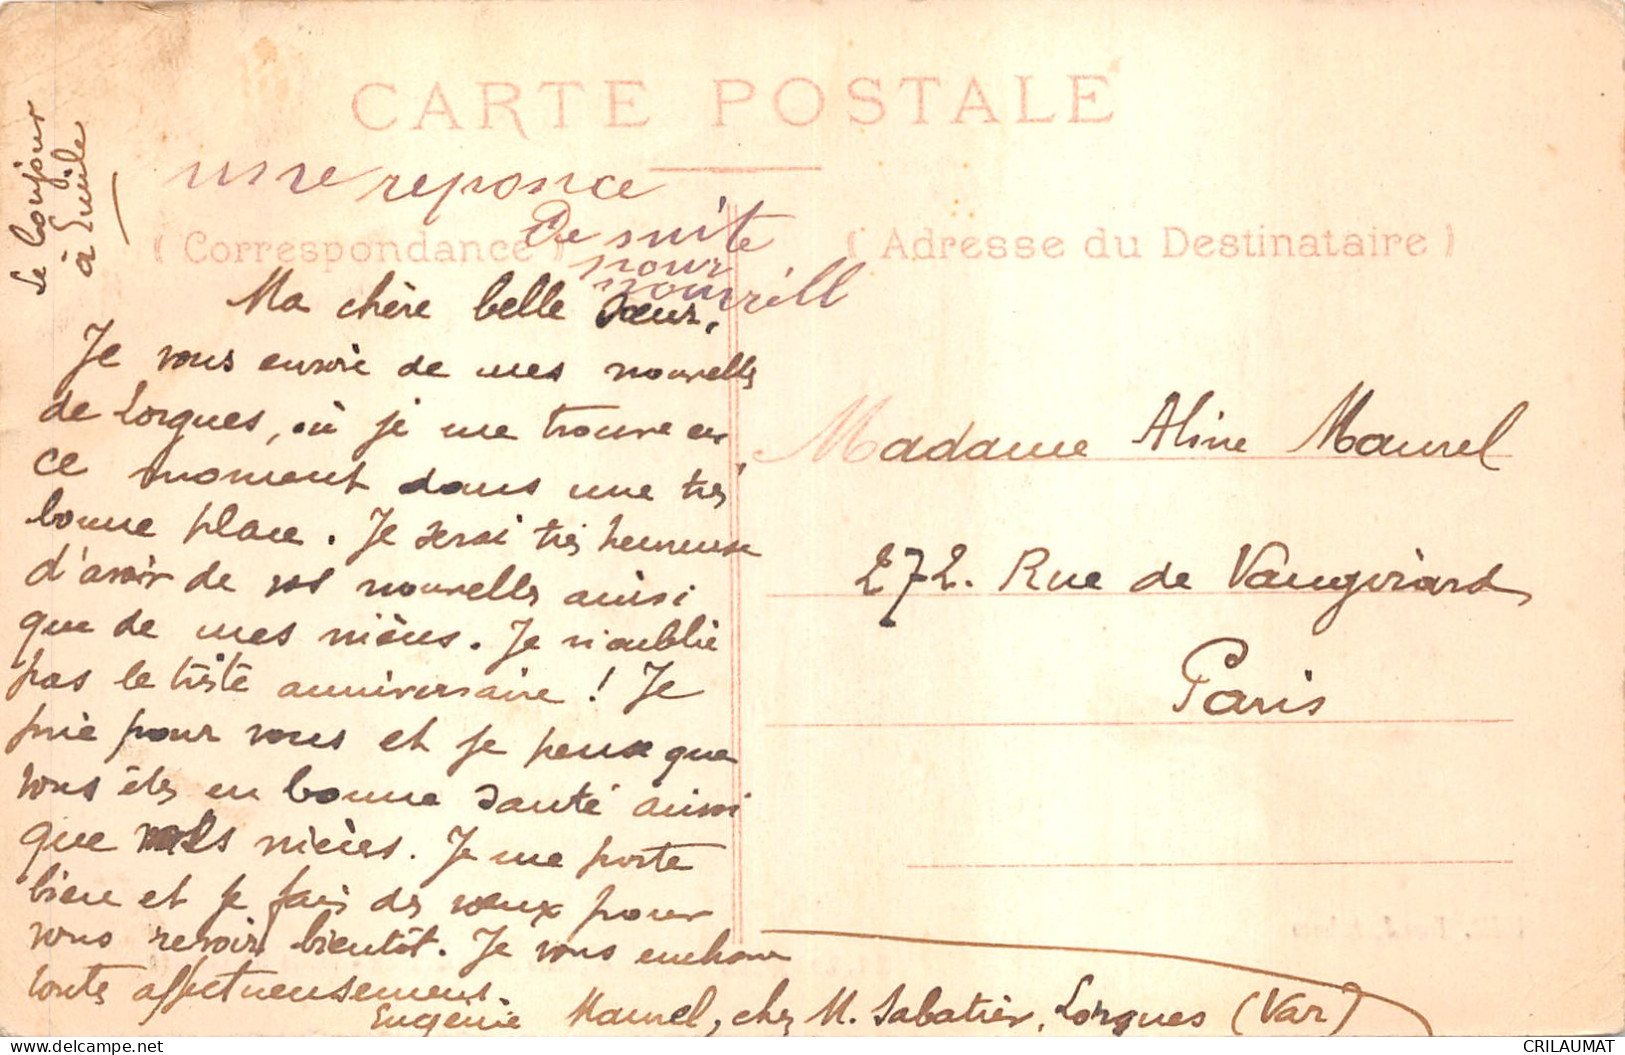 CARTE POSTALE
Le bonjour
à Emile
une reponce
De suite
pour
( Correspondance )
( Adresse du Destinataire )
Ma chère belle soeur,
Je vous envoie de mes nouvelles
de Lorgues, où je me trouve en
ce moment dans une très
bonne place. Je serai très heureuse
d'avoir de vos nouvelles ainsi
que de mes nièces. Je n'oublie
pas le triste anniversaire ! Je
prie pour vous et je pense que
vous êtes en bonne santé aussi
que mes nièces. Je me porte
bien et je fais des voeux pour
vous revoir bientôt. Je vous embrasse
toutes affectueusement.
Eugénie Maurel, chez M. Sabatier, Lorgues (Var)
Madame Aline Maurel
272. Rue de Vaugirard
Paris
CRILAUMAT